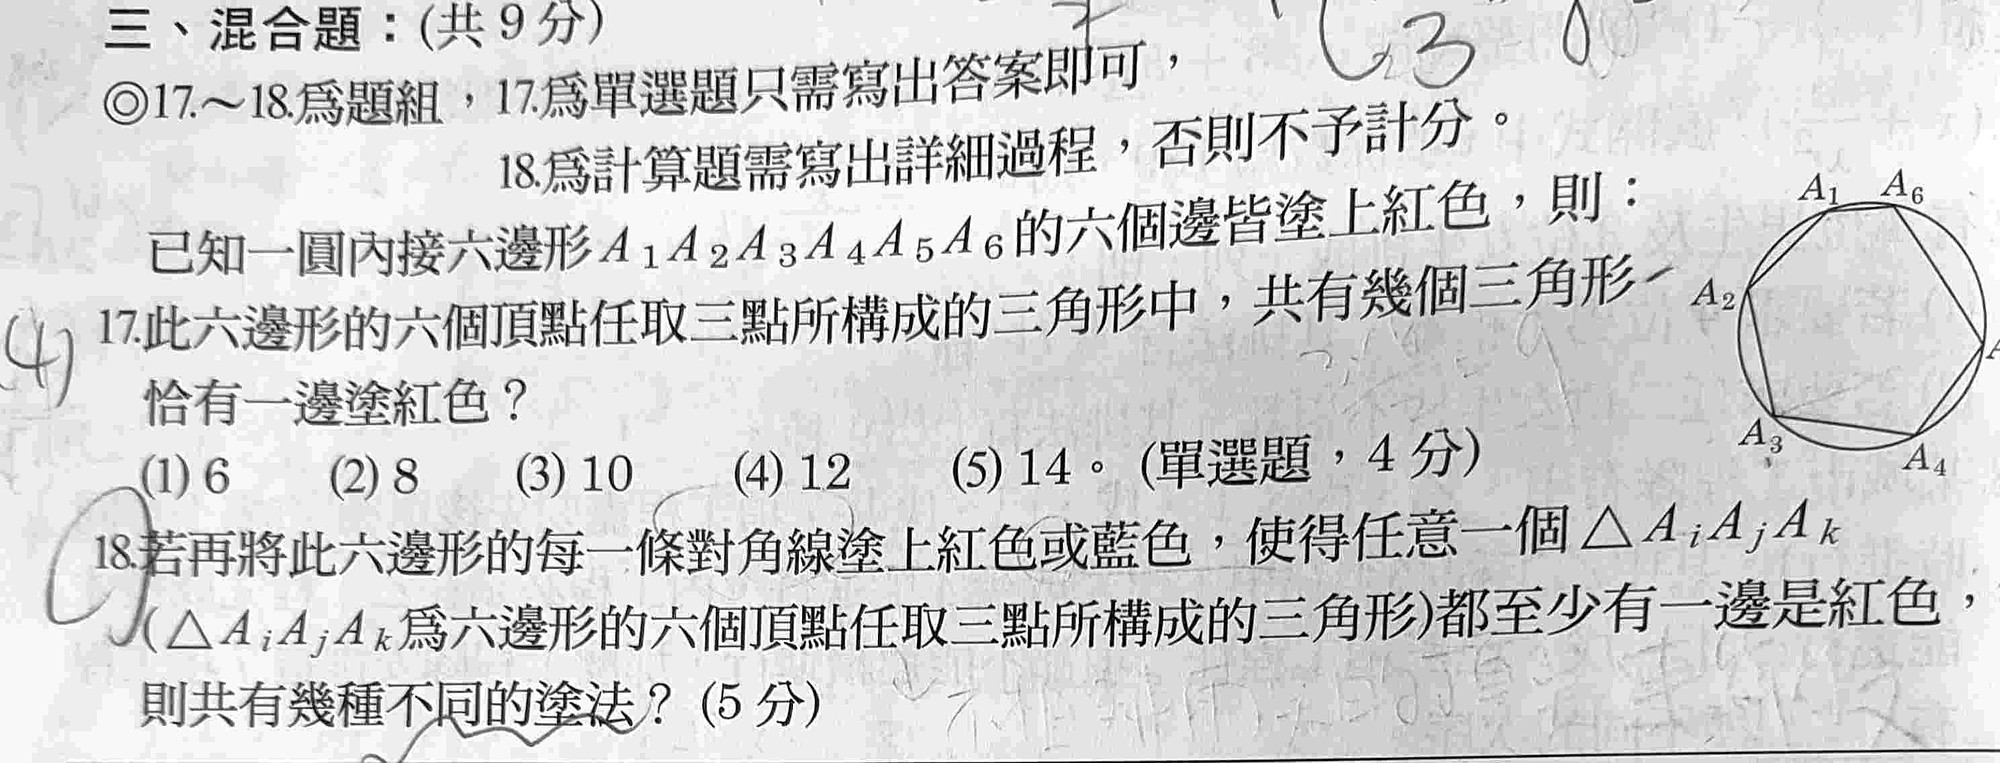 三、混合題：(共9分)
◎17.～18.為題組，17.為單選題只需寫出答案即可，
18.為計算題需寫出詳細過程，否則不予計分。
已知一圓內接六邊形A₁A₂A₃A₄A₅A₆的六個邊皆塗上紅色，則：
(4) 17.此六邊形的六個頂點任取三點所構成的三角形中，共有幾個三角形
恰有一邊塗紅色？
(1) 6 (2) 8 (3) 10 (4) 12 (5) 14。(單選題，4分)
18.若再將此六邊形的每一條對角線塗上紅色或藍色，使得任意一個△AᵢAⱼAₖ
(△AᵢAⱼAₖ為六邊形的六個頂點任取三點所構成的三角形)都至少有一邊是紅色，
則共有幾種不同的塗法？(5分)
A₁ A₆
A₂
A
A₃
A₄